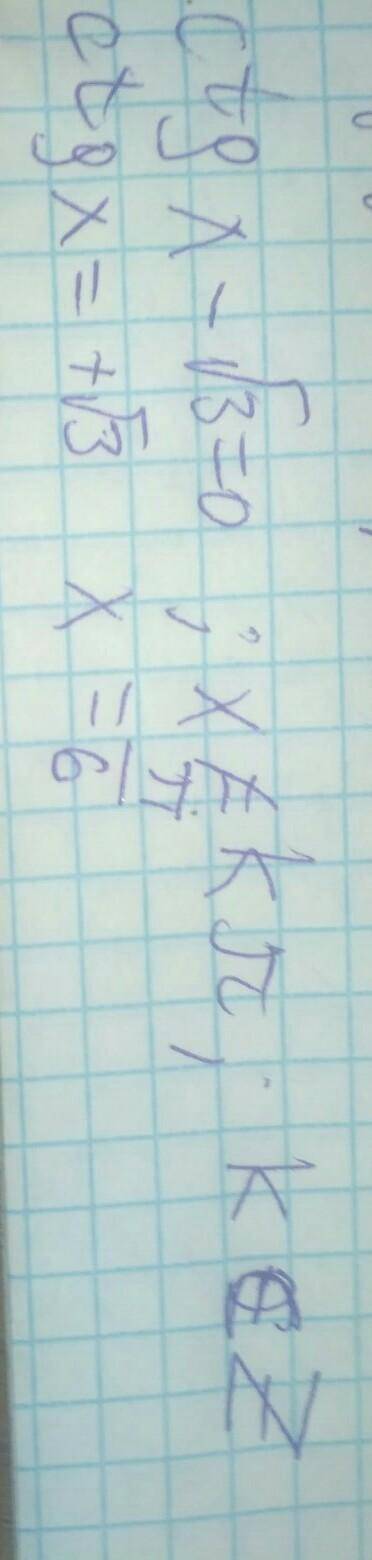 ctg x - √3 = 0 ; x ≠ kπ, k ∈ Z
ctg x = +√3 x = π/6